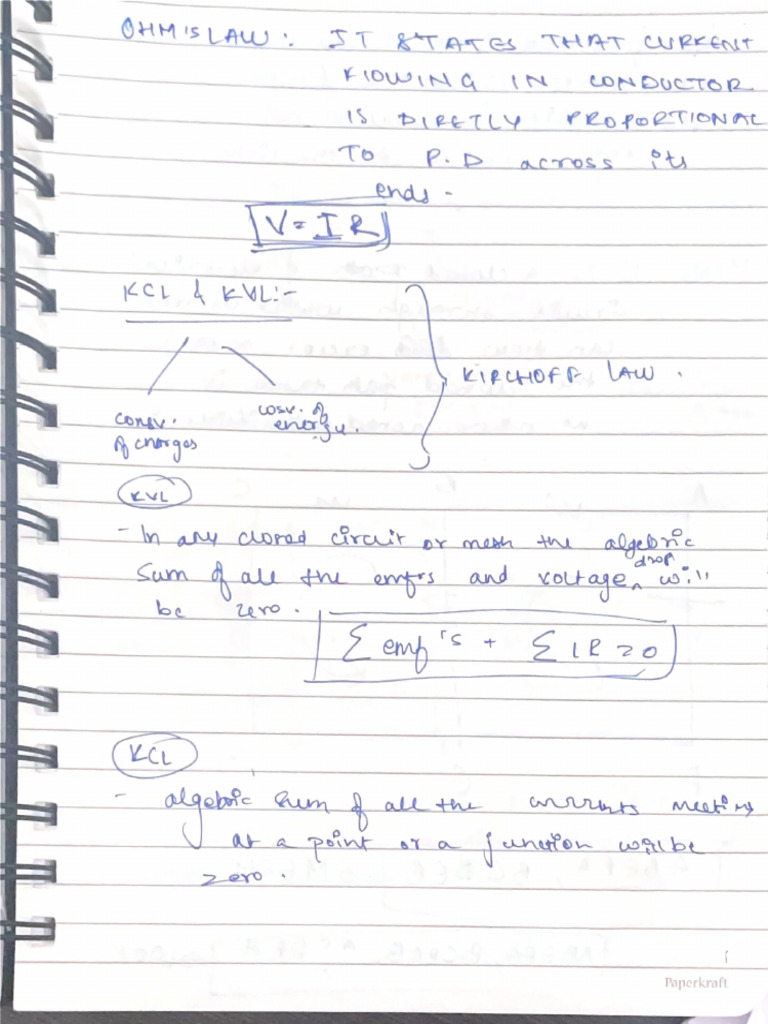 OHM'S LAW: IT STATES THAT CURRENT
FLOWING IN CONDUCTOR
IS DIRETLY PROPORTIONAL
TO P.D across its
ends -
V = IR
KCL & KVL:-
KIRCHOFF LAW.
consv. of charges
cosv. of energy.
KVL
- In any closed circuit or mesh the algebric
drop
Sum of all the emf's and voltage ^ will
be zero.
Σ emf's + Σ IR = 0
KCL
- algebric sum of all the currents meeting
at a point or a junction will be
zero.
Paperkraft